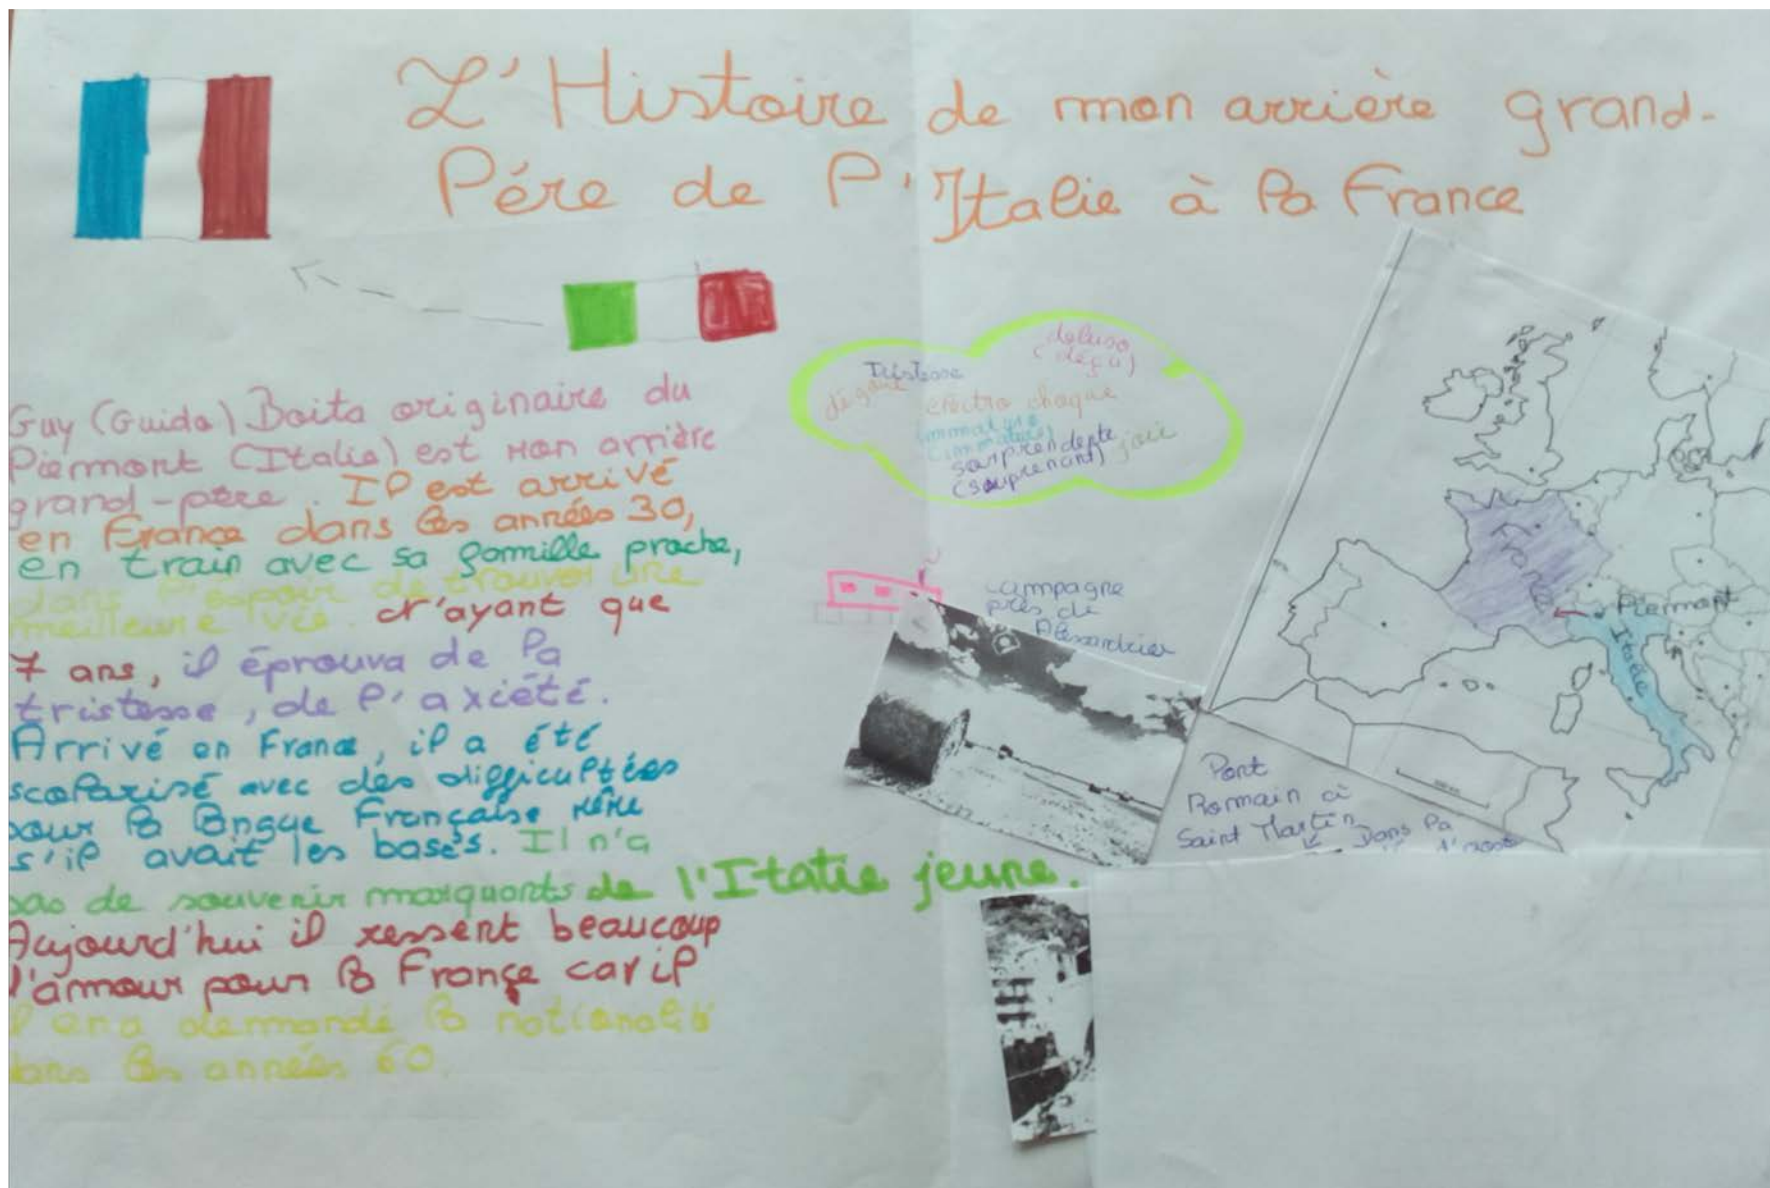 L'Histoire de mon arrière grand-
Pére de l'Italie à la France
Guy (Guido) Boito originaire du
Piermont (Italie) est mon arrière
grand-père. Il est arrivé
en France dans les années 30,
en train avec sa famille proche,
dans l'espoir de trouver une
meilleure vie. N'ayant que
7 ans, il éprouva de la
tristesse, de l'axiété.
Arrivé en France, il a été
scolarisé avec des difficultées
pour la langue Française même
s'il avait les bases. Il n'a
pas de souvenir marquants de l'Italie jeune.
Aujourd'hui il ressent beaucoup
d'amour pour la France car il
l'en a demandé la nationalité
dans les années 60.
deluso
(déçu)
Tristesse
dégout
électro choque
immature
(immature)
sorprendente joie
(surprenant)
campagne
près de
Alessandrier
France
Piermont
Italie
Pont
Romain à
Saint Martin
Dans la